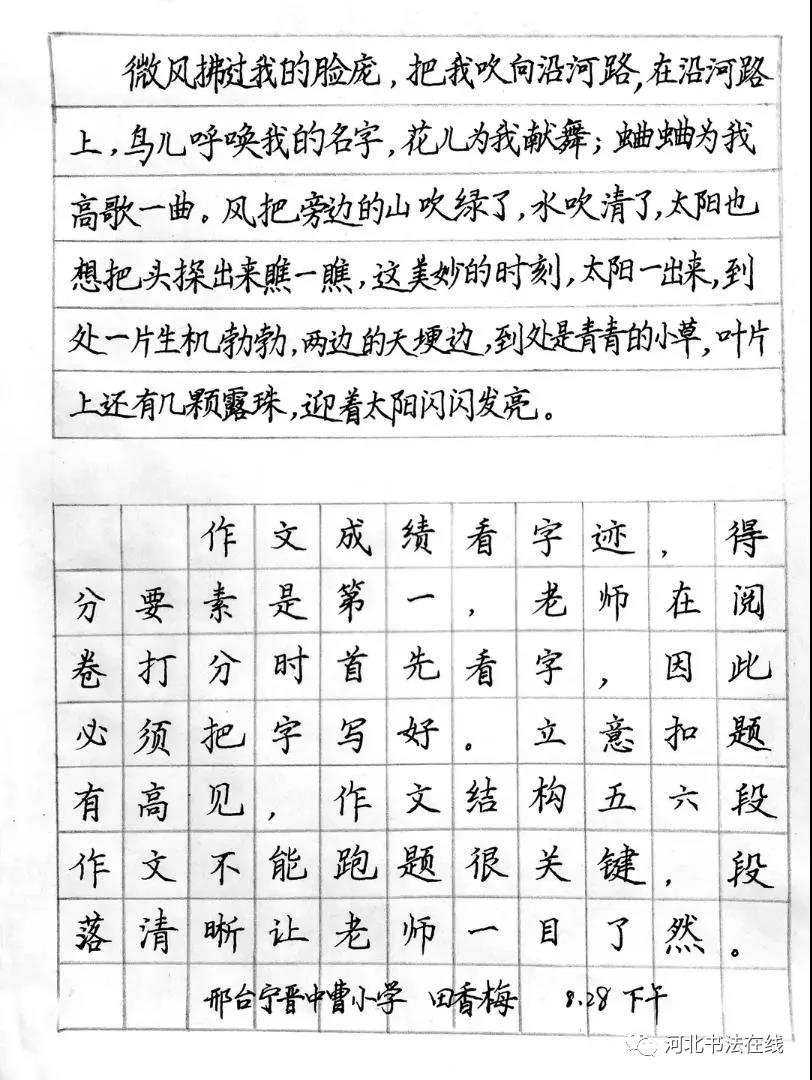 微风拂过我的脸庞，把我吹向沿河路，在沿河路
上，鸟儿呼唤我的名字，花儿为我献舞；蛐蛐为我
高歌一曲。风把旁边的山吹绿了，水吹清了，太阳也
想把头探出来瞧一瞧，这美妙的时刻，太阳一出来，到
处一片生机勃勃，两边的天埂边，到处是青青的小草，叶片
上还有几颗露珠，迎着太阳闪闪发亮。
作文成绩看字迹，得
分要素是第一，老师在阅
卷打分时首先看字，因此
必须把字写好。立意扣题
有高见，作文结构五六段
作文不能跑题很关键，段
落清晰让老师一目了然。
邢台宁晋中曹小学 田香梅 8.28 下午
河北书法在线